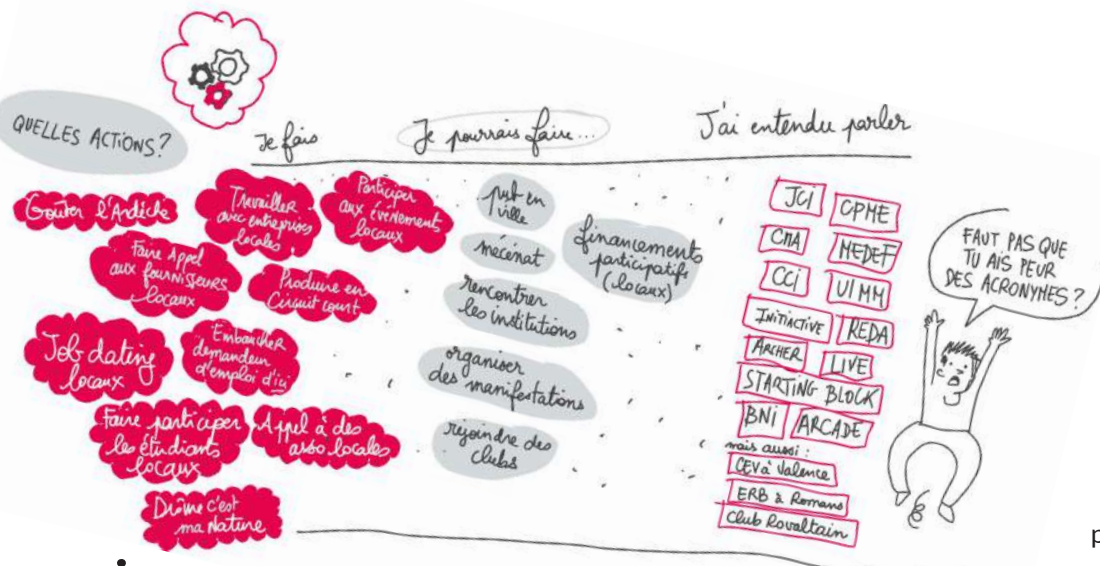 QUELLES ACTIONS?
Je fais
Je pourrais faire...
J'ai entendu parler
Goûter l'Ardèche
Travailler
avec entreprises
locales
Participer
aux événements
locaux
Faire Appel
aux fournisseurs
locaux
Produire en
Circuit court
Job dating
locaux
Embaucher
demandeur
d'emploi d'ici
Faire participer
les étudiants
locaux
Appel à des
asso locales
Drôme c'est
ma Nature
pub en
ville
mécénat
financements
participatifs
(locaux)
rencontrer
les institutions
organiser
des manifestations
rejoindre des
clubs
JCI
CPME
CMA
MEDEF
CCI
UIMM
INITIACTIVE
REDA
ARCHER
LIVE
STARTING BLOCK
BNI
ARCADE
mais aussi :
CEV à Valence
ERB à Romans
Club Rovaltain
FAUT PAS QUE
TU AIS PEUR
DES ACRONYMES?
p